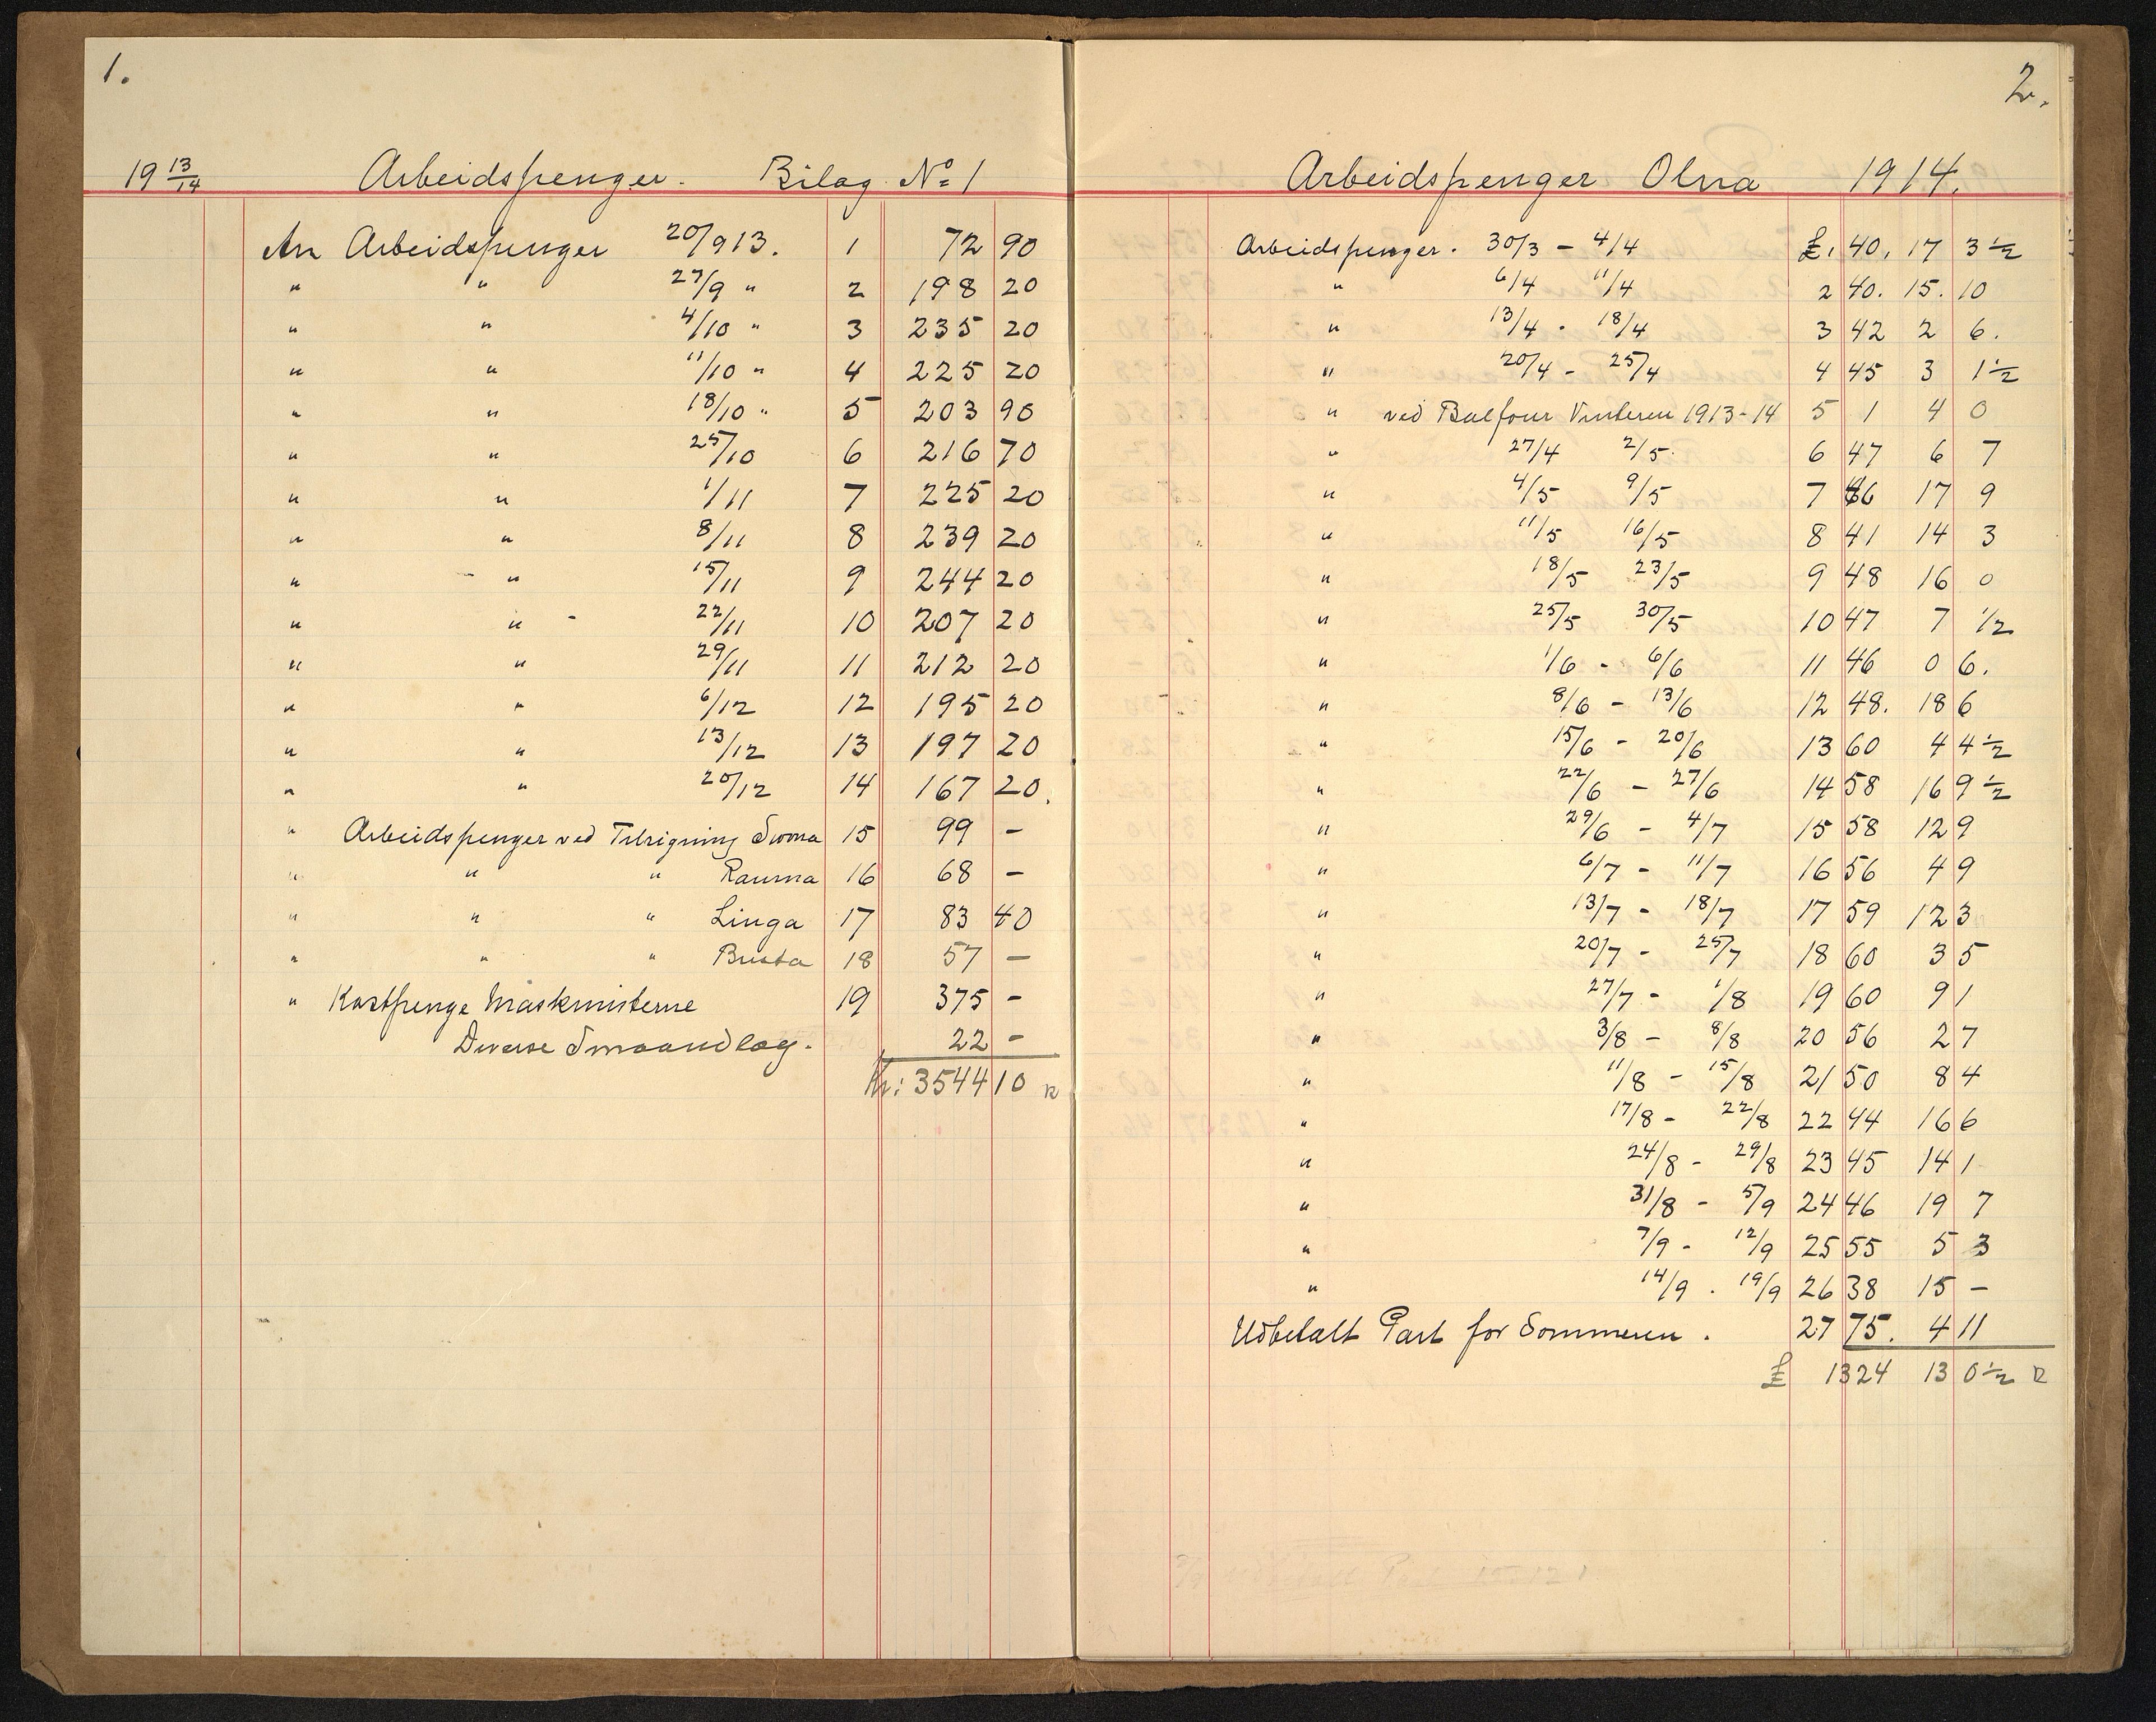 1.
19 13/14 Arbeidspenger. Bilag № 1
An Arbeidspenger 20/9 13. 1 72 90
" " 27/9 " 2 198 20
" " 4/10 " 3 235 20
" " 11/10 " 4 225 20
" " 18/10 " 5 203 90
" " 25/10 6 216 70
" " 1/11 7 225 20
" " 8/11 8 239 20
" " 15/11 9 244 20
" " 22/11 10 207 20
" " 29/11 11 212 20
" " 6/12 12 195 20
" " 13/12 13 197 20
" " 20/12 14 167 20.
" Arbeidspenger ved Tilrigning Svona 15 99 -
" " " Rauma 16 68 -
" " " Linga 17 83 40
" " " Brista 18 57 -
" Kostpenge Maskinisterne 19 375 -
Diverse Smaaudlæg. 22 -
Kr: 3544 10
2.
Arbeidspenger Olna 1914.
Arbeidspenger. 30/3 - 4/4 £. 40. 17 3 1/2
" 6/4 11/4 2 40. 15. 10
" 13/4 - 18/4 3 42 2 6.
" 20/4 - 25/4 4 45 3 1 1/2
" ved Balfour Vinteren 1913-14 5 1 4 0
" 27/4 2/5. 6 47 6 7
" 4/5 9/5 7 46 17 9
" 11/5 16/5 8 41 14 3
" 18/5 23/5 9 48 16 0
" 25/5 30/5 10 47 7 1/2
" 1/6 - 6/6 11 46 0 6.
" 8/6 - 13/6 12 48. 18 6
" 15/6 - 20/6 13 60 4 4 1/2
" 22/6 - 27/6 14 58 16 9 1/2
" 29/6 - 4/7 15 58 12 9
" 6/7 - 11/7 16 56 4 9
" 13/7 - 18/7 17 59 12 3
" 20/7 - 25/7 18 60 3 5
" 27/7 - 1/8 19 60 9 1
" 3/8 - 8/8 20 56 2 7
" 11/8 - 15/8 21 50 8 4
" 17/8 - 22/8 22 44 16 6
" 24/8 - 29/8 23 45 14 1
" 31/8 - 5/9 24 46 19 7
" 7/9 - 12/9 25 55 5 3
" 14/9 . 19/9 26 38 15 -
Udbetalt Part for Sommeren . 27 75. 4 11
£ 1324 13 0 1/2